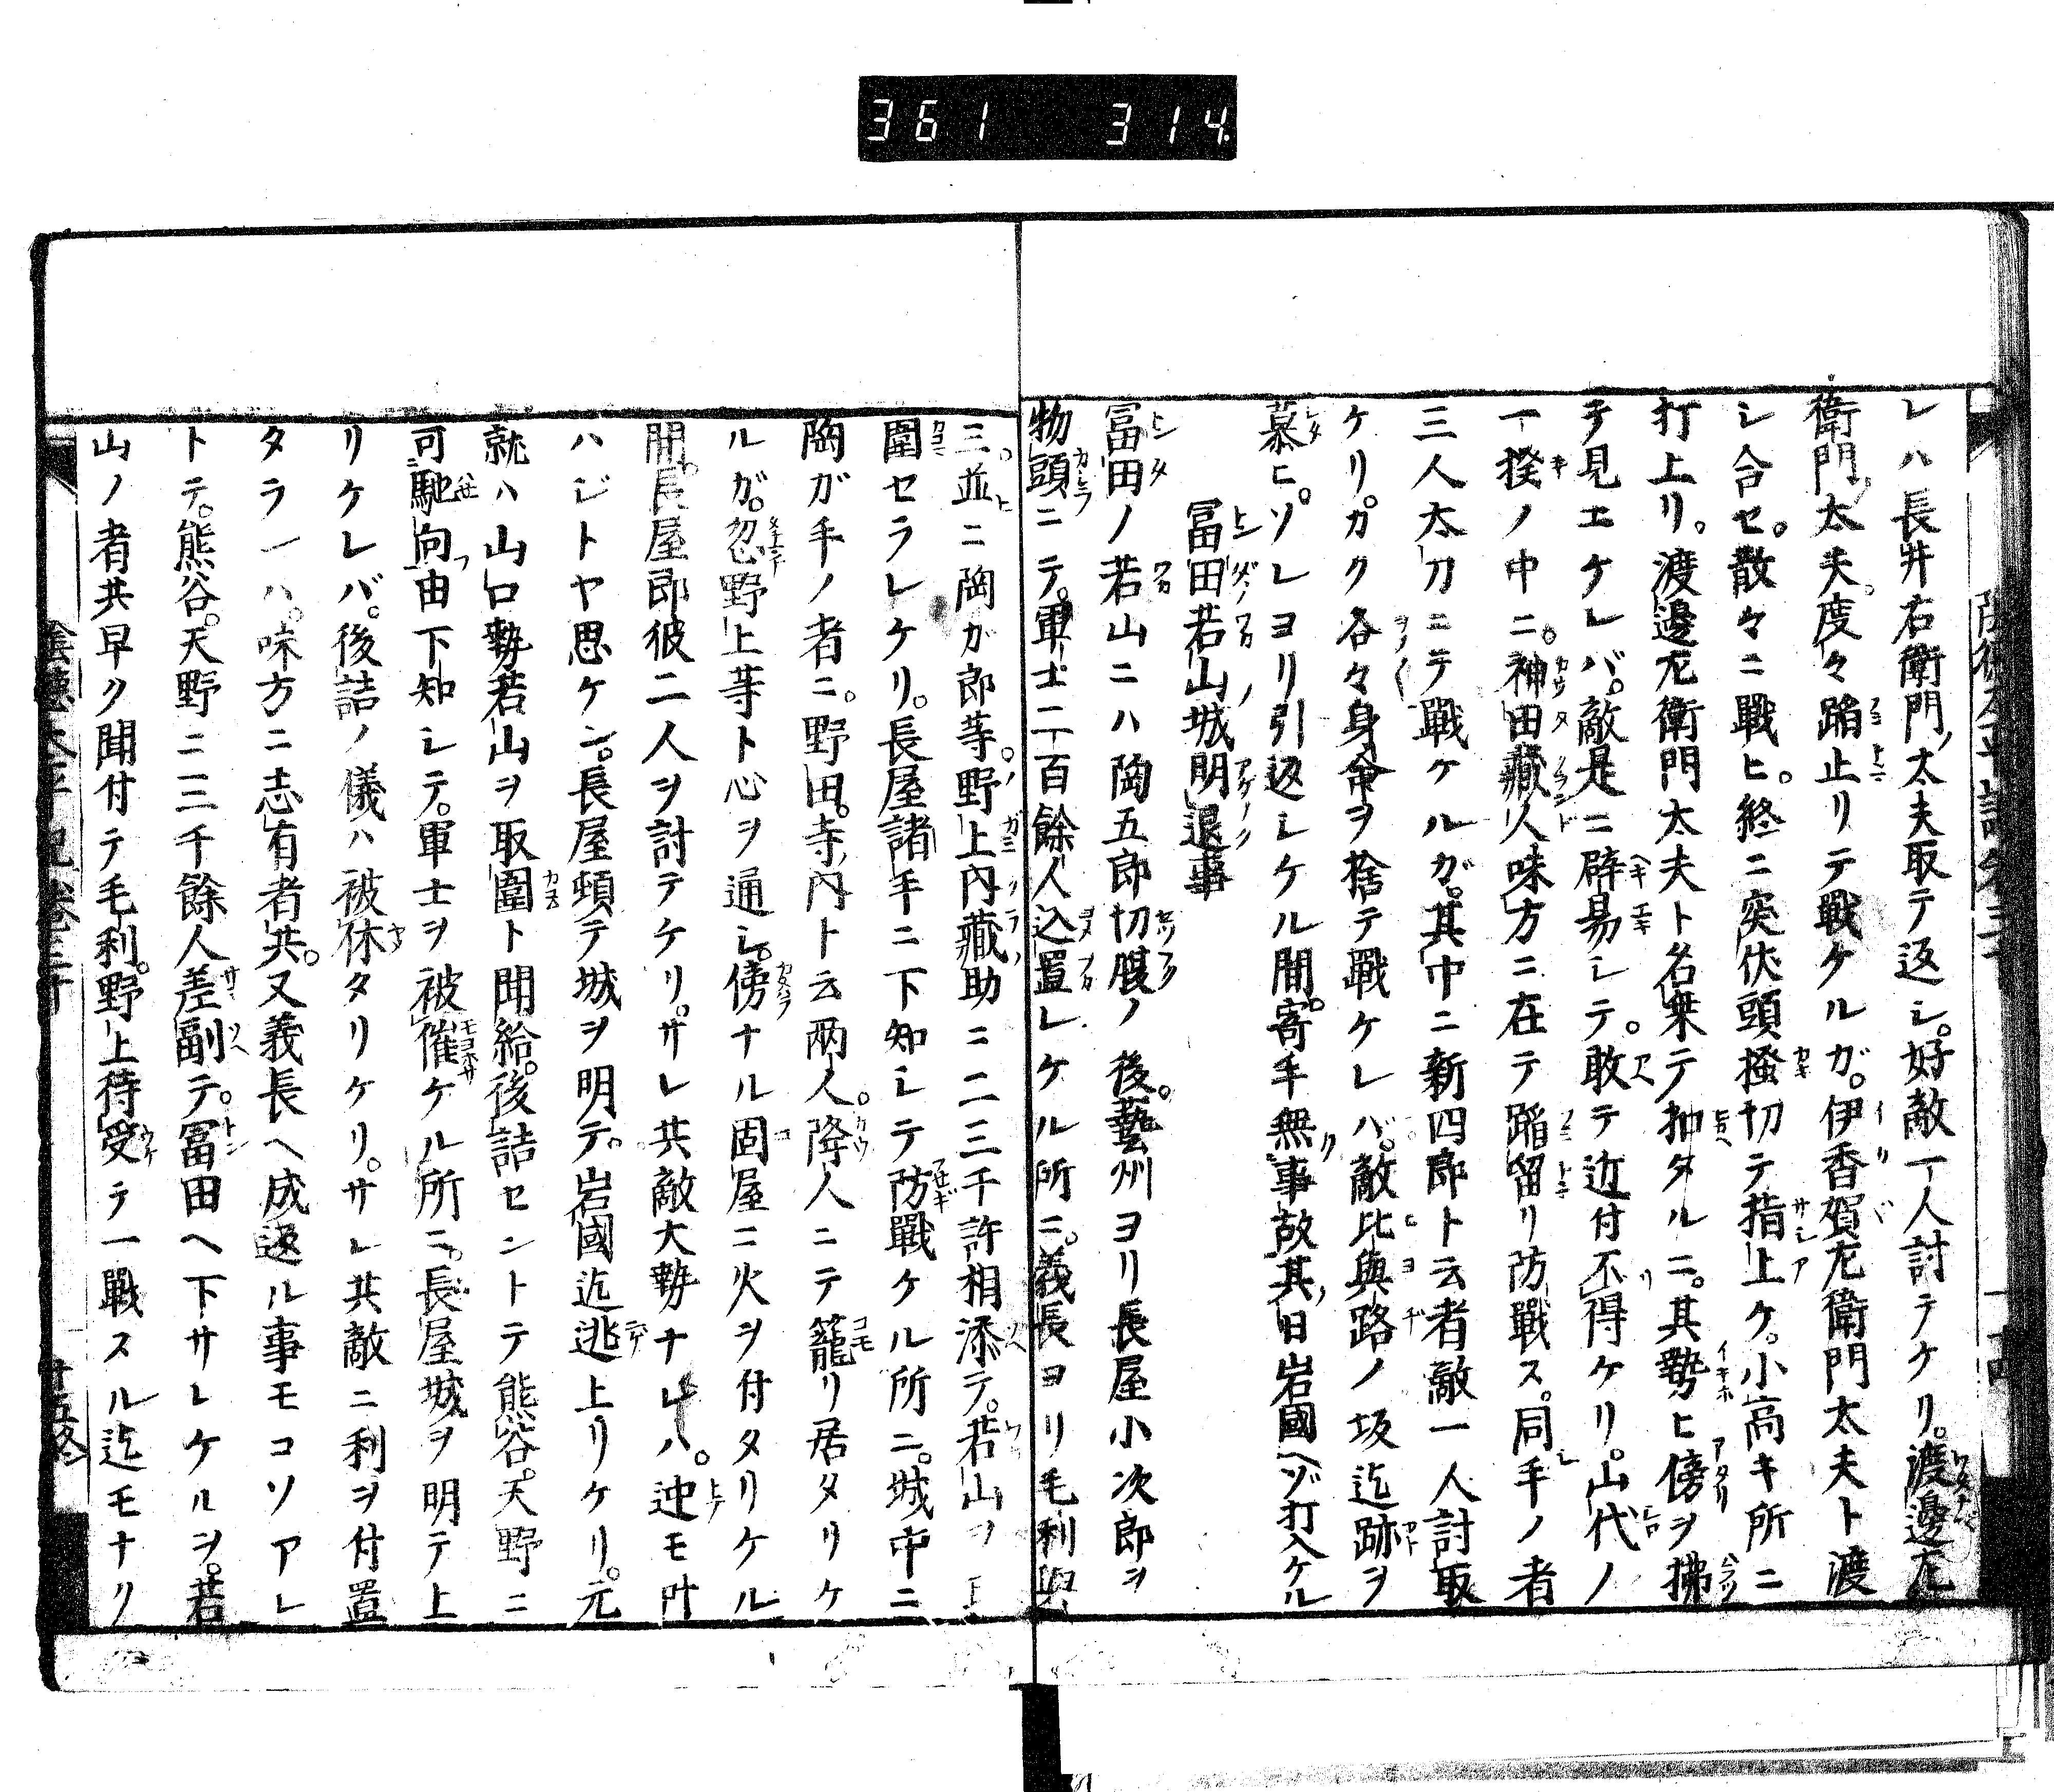 361 314
レハ長井右衛門ノ太夫取テ返シ。好敵一人討テケリ。渡邊左
衛門ノ太夫。度々踏止リテ戰ケルガ。伊香賀左衛門太夫ト渡
シ合セ。散々ニ戰ヒ。終ニ突伏頭搔切テ指上ケ。小高キ所ニ
打上リ。渡邊左衛門太夫ト名乗テ抽タルニ。其勢ヒ傍ヲ拂
テ見エケレバ。敵是ニ辟易シテ。敢テ近付不得ケリ。山代ノ
一揆ノ中ニ。神田藏人味方ニ在テ踏留リ防戰ス。同手ノ者
三人太刀ニテ戰ケルガ。其中ニ新四郎ト云者敵一人討取
ケリ。カク各々身命ヲ捨テ戰ケレバ。敵比與路ノ坂迄跡ヲ
慕ヒ。ソレヨリ引返シケル間。寄手無事故其ノ日岩國ヘゾ打入ケル
冨田若山ノ城明退事
冨田ノ若山ニハ陶五郎切腹ノ後。藝州ヨリ長屋小次郎ヲ
物頭ニテ。軍士二百餘人込置レケル所ニ。義長ヨリ毛利與
三。並ニ陶ガ郎等。野上内藏助ニ二三千許相添テ。若山ヲ
圍セラレケリ。長屋諸手ニ下知シテ防戰ケル所ニ。城中ニ
陶ガ手ノ者ニ。野田。寺内ト云兩人。降人ニテ籠リ居タリケ
ルガ。忽野上等ト心ヲ通シ。傍ナル固屋ニ火ヲ付タリケル
間。長屋郎彼二人ヲ討テケリ。サレ共敵大勢ナレハ。迚モ叶
ハジトヤ思ケン。長屋頓テ城ヲ明テ。岩國迄逃上リケリ。元
就ハ山口勢若山ヲ取圍ト聞給。後詰セントテ熊谷。天野ニ
可馳向由下知シテ。軍士ヲ被催ケル所ニ。長屋城ヲ明テ上
リケレバ。後詰ノ儀ハ被休タリケリ。サレ共敵ニ利ヲ付置
タラハ。味方ニ志有者共。又義長ヘ成返ル事モコソアレ
トテ。熊谷。天野ニ三千餘人差副テ。冨田ヘ下サレケルヲ。若
山ノ者共早ク聞付テ毛利。野上待受テ一戰スル迄モナク
陰德太平記卷三十